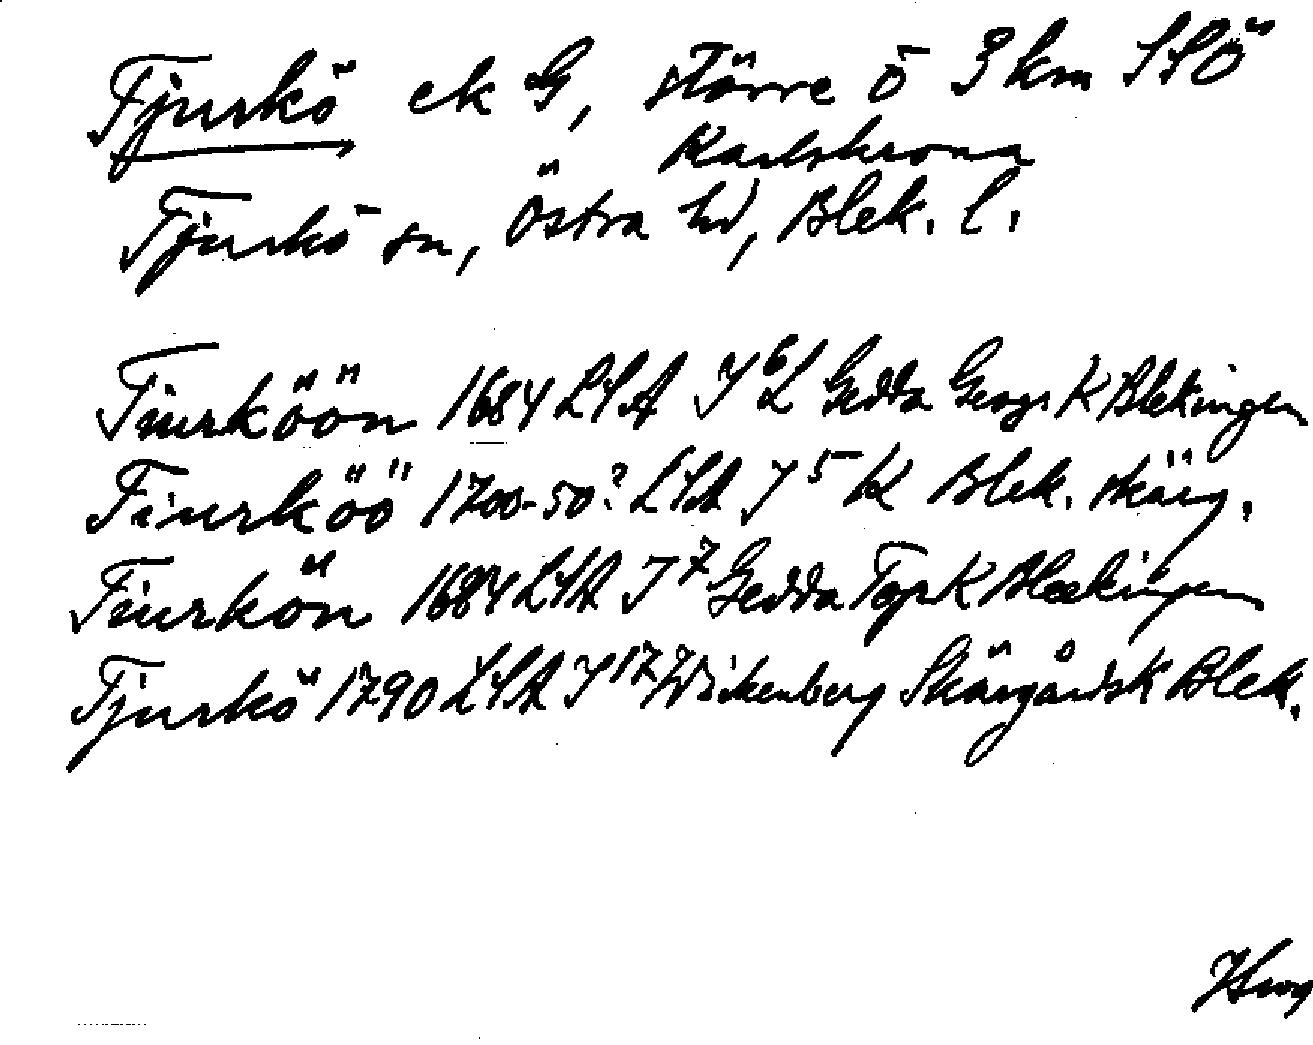 Tjurkö ek G, större ö 3 km SSÖ
Karlskrona
Tjurkö sn, Östra hd, Blek. l.
Tiurköön 1684 LSA I 6 L Gedda Geogr K Blekingen
Tiurköö 1700-50? LSA I 5 K Blek. skärg.
Tiurkön 1684 LSA I 7 Gedda Top K Bleekingen
Tjurkö 1790 LSA I 17 Wickenberg Skärgårdsk Blek.